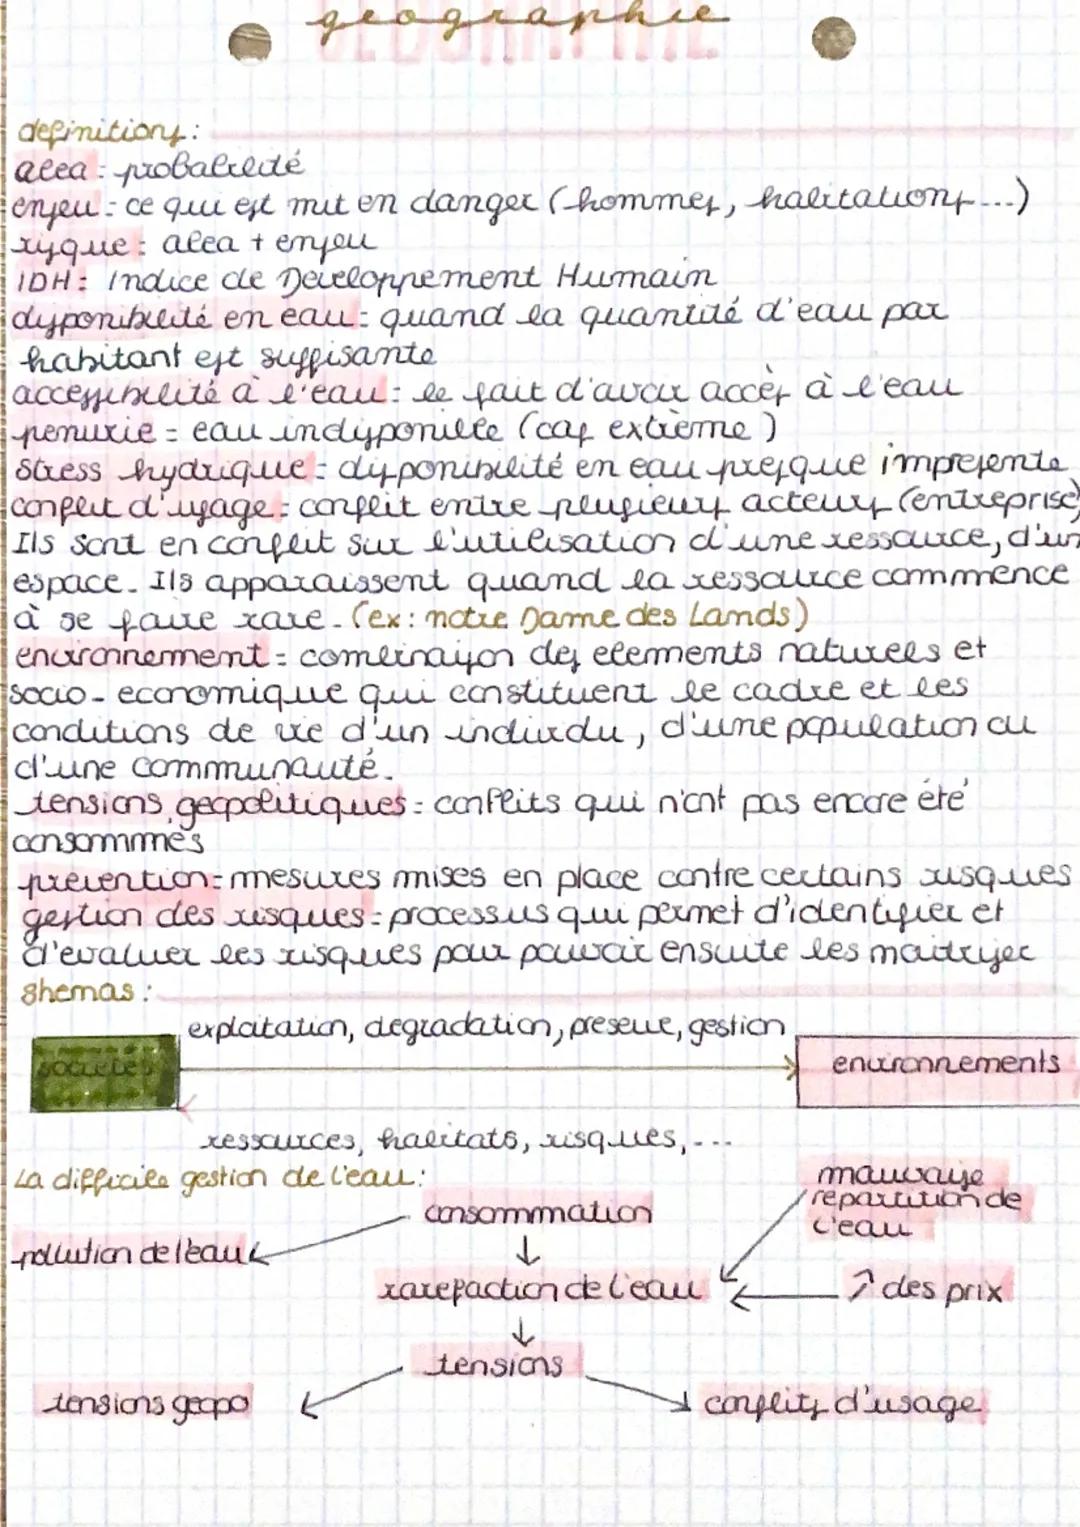 geographie
GEOGRAPHIE
definitions:
alea: probabilité
enjeu: ce qui est mit en danger (hommes, habitations...)
risque: alea + enjeu
IDH: Indice de Developpement Humain
disponibilité en eau: quand la quantité d'eau par
habitant est suffisante
accessibilité à l'eau: le fait d'avoir accès à l'eau
penurie= eau indisponible (cas extrème)
stress hydrique= disponibilité en eau presque impresente
conflit d'usage: conflit entre plusieurs acteurs (entreprise)
Ils sont en conflit sur l'utilisation d'une ressource, d'un
espace. Ils apparaissent quand la ressource commence
à se faire rare. (ex: notre Dame des Lands)
environnement= combinaison des elements naturels et
socio-economique qui constituent le cadre et les
conditions de vie d'un individu, d'une population ou
d'une communauté.
tensions geopolitiques: conflits qui n'ont pas encore été
consommés
prevention= mesures mises en place contre certains risques
gestion des risques= processus qui permet d'identifier et
d'evaluer les risques pour pouvoir ensuite les maitriser
shemas:
exploitation, degradation, preserve, gestion
societes
environnements
ressources, habitats, risques,...
La difficile gestion de l'eau:
mauvaise
repartition de
l'eau
consommation
pollution de l'eau
rarefaction de l'eau
↗ des prix
tensions
tensions geopo
conflits d'usage